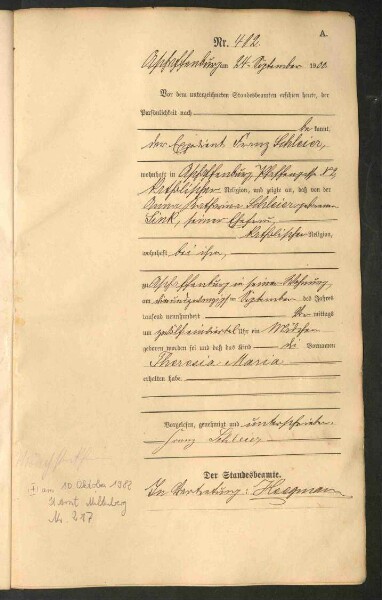 A.
Nr. 412
Aschaffenburg am 24. September 1900.
Vor dem unterzeichneten Standesbeamten erschien heute, der
Persönlichkeit nach
be kannt,
der Expedient Franz Schleier,
wohnhaft in Aschaffenburg, Pfaffengasse
katholischer Religion, und zeigte an, daß von der
Anna Schleier geborenen
Link, seiner Ehefrau,
katholischer Religion,
wohnhaft bei ihm,
zu Aschaffenburg in seiner Wohnung,
am September des Jahres
tausend neunhundert Vor mittags
um Uhr ein Mädchen
geboren worden sei und daß das Kind die Vornamen
Theresia Maria
erhalten habe.
Vorgelesen, genehmigt und unterschrieben
Franz Schleier
Der Standesbeamte.
In Vertretung:
am 10. Oktober 1982
St. Amt Miltenberg
Nr. 287